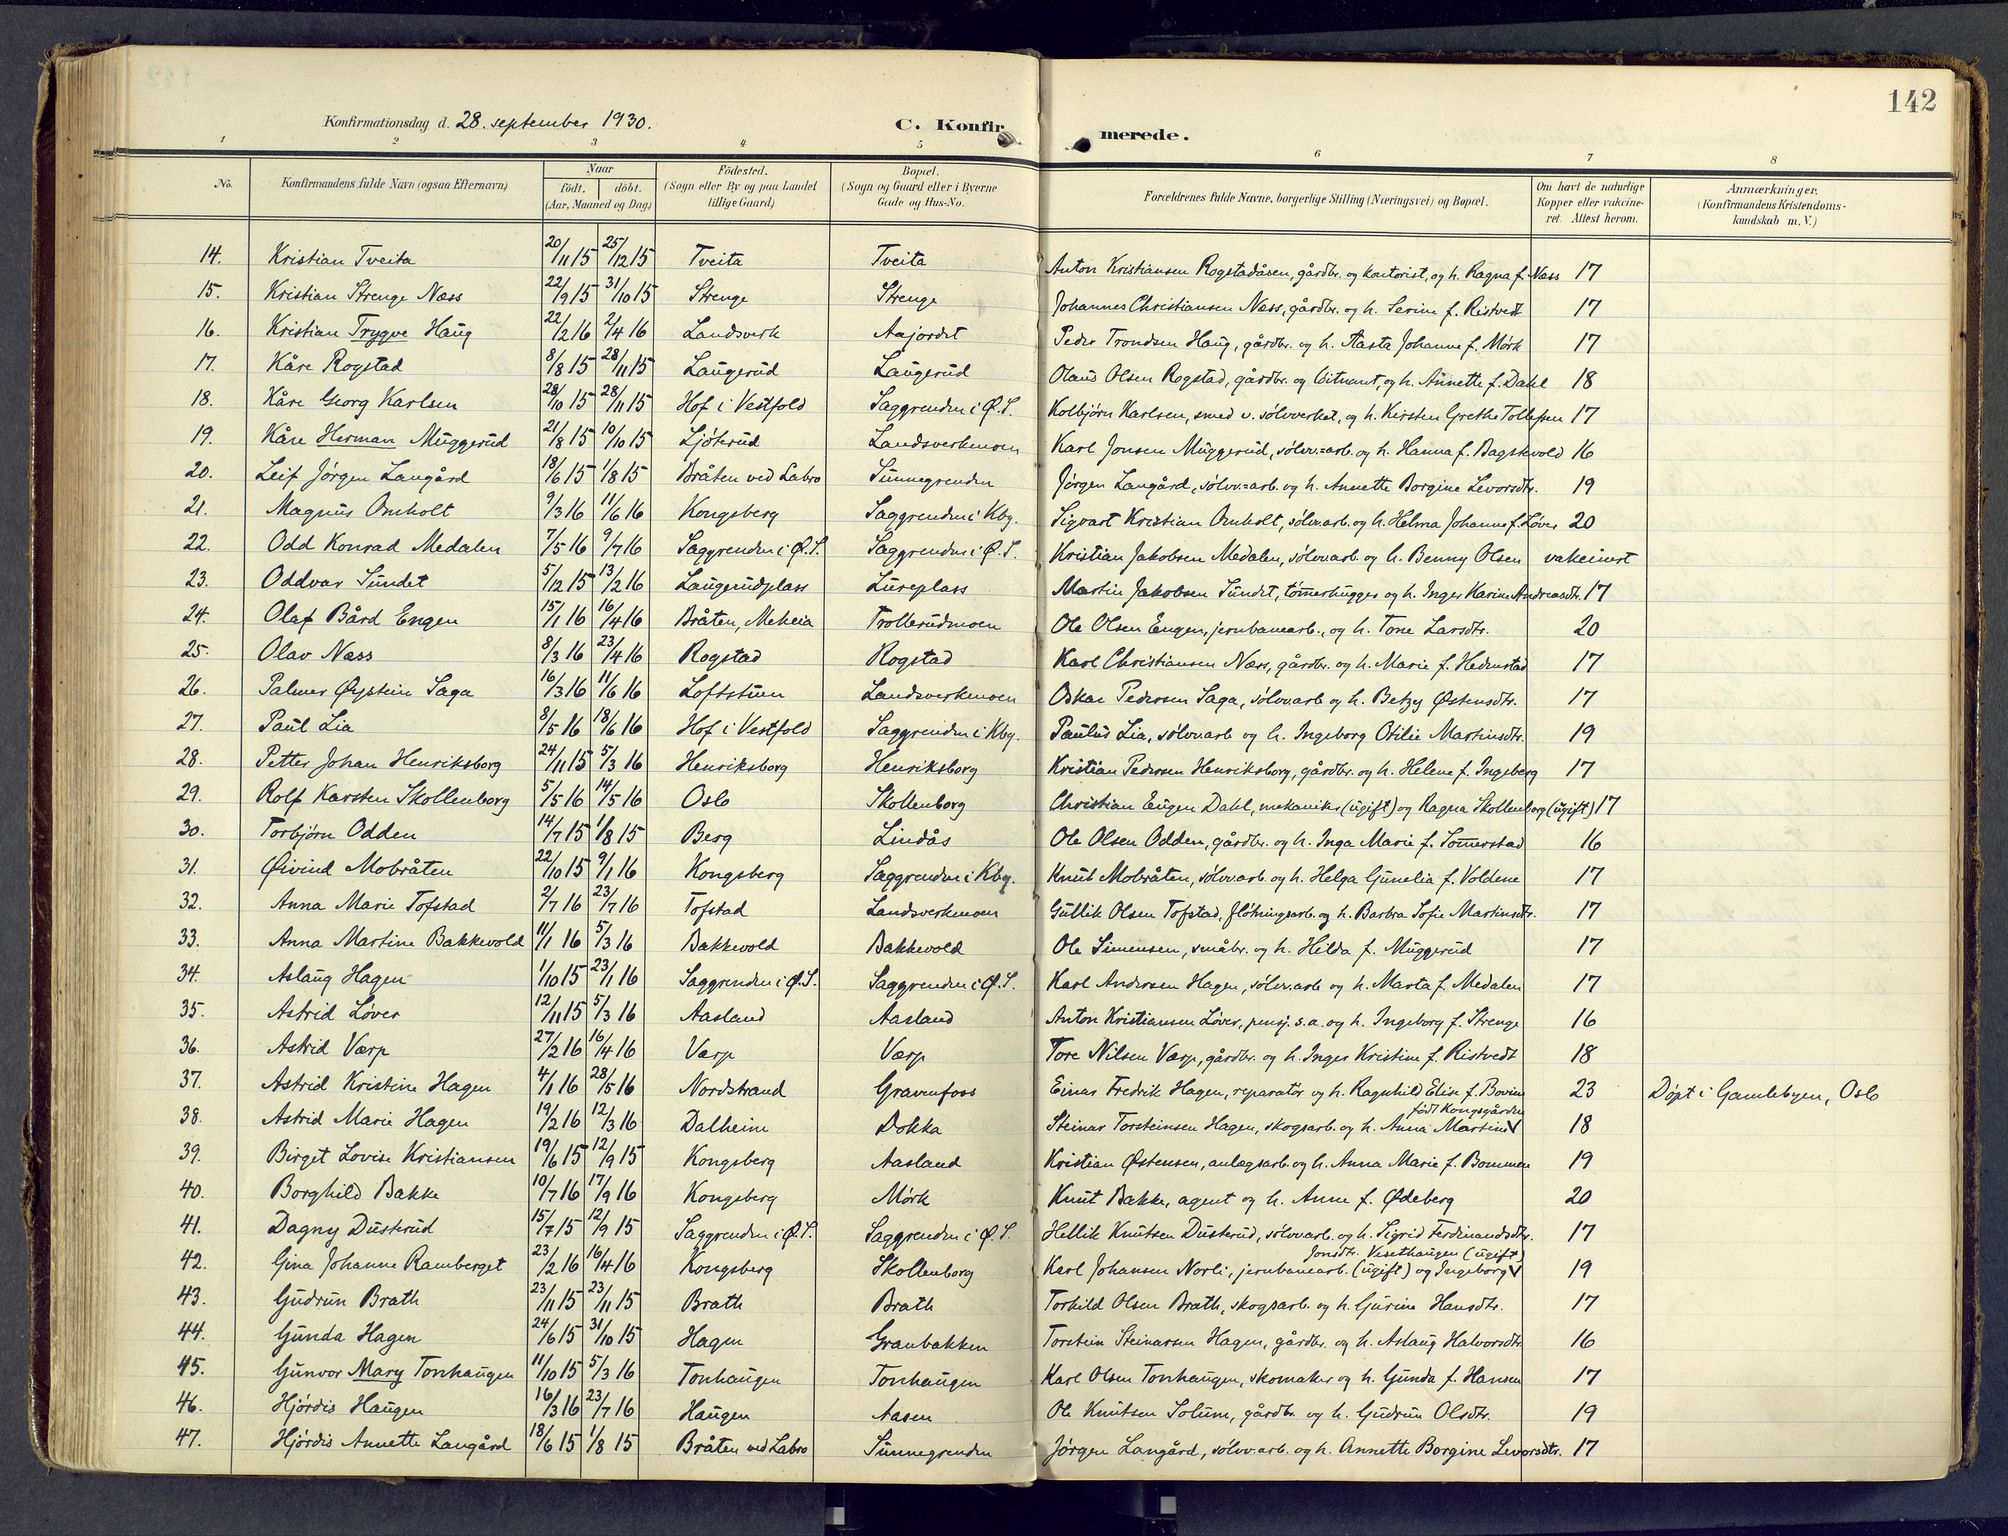 142
Konfirmationsdag d. 28. september 1930. C. Konfirmerede.
1 2 3 4 5 6 7 8
No. Konfirmandens fulde Navn (ogsaa Efternavn) Naar födt. döbt. (Aar, Maaned og Dag) Födested. (Sogn eller By og paa Landet tillige Gaard) Bopæl. (Sogn og Gaard eller i Byerne Gade og Hus-No. Forældrenes fulde Navne, borgerlige Stilling (Næringsvei) og Bopæl. Om havt de naturlige Kopper eller vakcineret. Attest herom. Anmærkninger. (Konfirmandens Kristendomskundskab m. V.)
14. Kristian Tveita 20/11 15 25/12 15 Tveita Tveita Anton Kristiansen Rogstadåsen, gårdbr. og kontorist, og h. Ragna f. Næss 17
15. Kristian Strenge Næss 22/9 15 31/10 15 Strenge Strenge Johannes Christiansen Næss, gårdbr. og h. Serine f. Ristvedt 17
16. Kristian Trygve Haug 22/2 16 2/4 16 Landsverk Aajordet Peder Trondsen Haug, gårdbr. og h. Aasta Johanne f. Mørk 17
17. Kåre Rogstad 8/8 15 28/11 15 Laugerud Laugerud Olaus Olsen Rogstad, gårdbr. og løitnant, og h. Annette f. Dahl 18
18. Kåre Georg Karlsen 28/10 15 28/11 15 Hof i Vestfold Saggrenden i Ø.S. Kolbjørn Karlsen, smed v. sølvverket, og h. Kirsten Grethe Tollefsen 17
19. Kåre Herman Muggerud 21/8 15 10/10 15 Ljøterud Landsverkmoen Karl Jonsen Muggerud, sølvv.arb. og h. Hanna f. Bagstevold 16
20. Leif Jørgen Langård 18/6 15 1/8 15 Bråten ved Labro Sunnegrenden Jørgen Langård, sølvv.arb. og h. Annette Borgine Levorsdtr. 19
21. Magnus Omholt 9/3 16 11/6 16 Kongsberg Saggrenden i Kbg. Sigvart Kristian Omholt, sølvv.arb. og h. Helma Johanne f. Løver 20
22. Odd Konrad Medalen 7/5 16 9/7 16 Saggrenden i Ø.S. Saggrenden i Ø.S. Kristian Jakobsen Medalen, sølvv.arb. og h. Benny Olsen vakcinert
23. Oddvar Sundet 5/12 15 13/2 16 Laugerudplass Lureplass Martin Jakobsen Sundet, tømerhugger og h. Inger Karine Andreasdtr. 17
24. Olaf Bård Engen 15/1 16 16/4 16 Bråten, Meheia Trollerudmoen Ole Olsen Engen, jernbanearb., og h. Tone Larsdtr. 20
25. Olav Næss 8/3 16 23/4 16 Rogstad Rogstad Karl Christiansen Næss, gårdbr. og h. Marie f. Hedenstad 17
26. Palmer Øystein Saga 16/3 16 11/6 16 Loftstuen Landsverkmoen Oskar Pedersen Saga, sølvv.arb og h. Betzy Østensdtr. 17
27. Paul Lia 8/5 16 18/6 16 Hof i Vestfold Saggrenden i Kbg. Paulus Lia, sølvv.arb og h. Ingeborg Otilie Martinsdtr. 19
28. Petter Johan Henriksborg 24/11 15 5/3 16 Henriksborg Henriksborg Kristian Pedersen Henriksborg, gårdbr. og h. Helene f. Ingeberg 17
29. Rolf Karsten Skollenborg 5/5 16 14/5 16 Oslo Skollenborg Christian Eugen Dahl, mekaniker (ugift) og Ragna Skollenborg (ugift) 17
30. Torbjørn Odden 14/7 15 1/8 15 Berg Lindås Ole Olsen Odden, gårdbr. og h. Inga Marie f. Somerstad 16
31. Øivind Mobråten 22/10 15 9/1 16 Kongsberg Saggrenden i Kbg. Knut Mobråten, sølvv.arb. og h. Helga Gunelia f. Voldene 17
32. Anna Marie Tofstad 2/7 16 23/7 16 Tofstad Landsverkmoen Gullik Olsen Tofstad, fløtningsarb. og h. Barbra Sofie Martinsdtr. 17
33. Anna Martine Bakkevold 11/1 16 5/3 16 Bakkevold Bakkevold Ole Simensen, småbr. og h. Hilda f. Muggerud 17
34. Aslaug Hagen 1/10 15 23/1 16 Saggrenden i Ø.S. Saggrenden i Ø.S. Karl Andersen Hagen, sølvv.arb og h. Marta f. Medalen 17
35. Astrid Løver 12/11 15 5/3 16 Aasland Aasland Anton Kristiansen Løver, pensj. s.a. og h. Ingeborg f. Strenge 16
36. Astrid Værp 27/2 16 16/4 16 Værp Værp Tore Nilsen Værp, gårdbr. og h. Inger Kristine f. Ristvedt 18
37. Astrid Kristine Hagen 4/1 16 28/5 16 Nordstrand Gravenfoss Einar Fredrik Hagen, reparatør og h. Ragnhild Elise f. Bovim 23 Døpt i Gamlebyen, Oslo
38. Astrid Marie Hagen 19/2 16 12/3 16 Dalheim Dokka Steinar Torsteinsen Hagen, skogsarb. og h. Anna Martine født Kongsgården 18
39. Birget Lovise Kristiansen 19/6 15 12/9 15 Kongsberg Aasland Kristian Østensen, anlægsarb. og h. Anna Marie f. Bommen 19
40. Borghild Bakke 10/7 16 17/9 16 Kongsberg Mørk Knut Bakke, agent og h. Anne f. Ødeberg 20
41. Dagny Dusterud 15/7 15 12/9 15 Saggrenden i Ø.S. Saggrenden i Ø.S. Hellik Knutsen Dusterud, sølvv.arb. og h. Sigrid Ferdinandsdtr. 17
42. Gina Johanne Ramberget 23/2 16 16/4 16 Kongsberg Skollenborg Karl Johansen Norli, jernbanearb. (ugift) og Ingeborg Jonsdtr. Vesethaugen (ugift) 19
43. Gudrun Brath 23/11 15 23/11 15 Brath Brath Torkild Olsen Brath, skogsarb. og h. Gurine Hansdtr. 17
44. Gunda Hagen 24/6 15 31/10 15 Hagen Granbakken Torstein Steinarsen Hagen, gårdbr. og h. Aslaug Halvorsdtr. 16
45. Gunvor Mary Tonhaugen 11/10 15 5/3 16 Tonhaugen Tonhaugen Karl Olsen Tonhaugen, skomaker og h. Gunda f. Hansen 17
46. Hjørdis Haugen 16/3 16 23/7 16 Haugen Aasen Ole Knutsen Solum, gårdbr. og h. Gudrun Olsdtr. 19
47. Hjørdis Annette Langård 18/6 15 1/8 15 Bråten ved Labro Sunnegrenden Jørgen Langård, sølvv.arb. og h. Annette Borgine Levorsdtr. 17